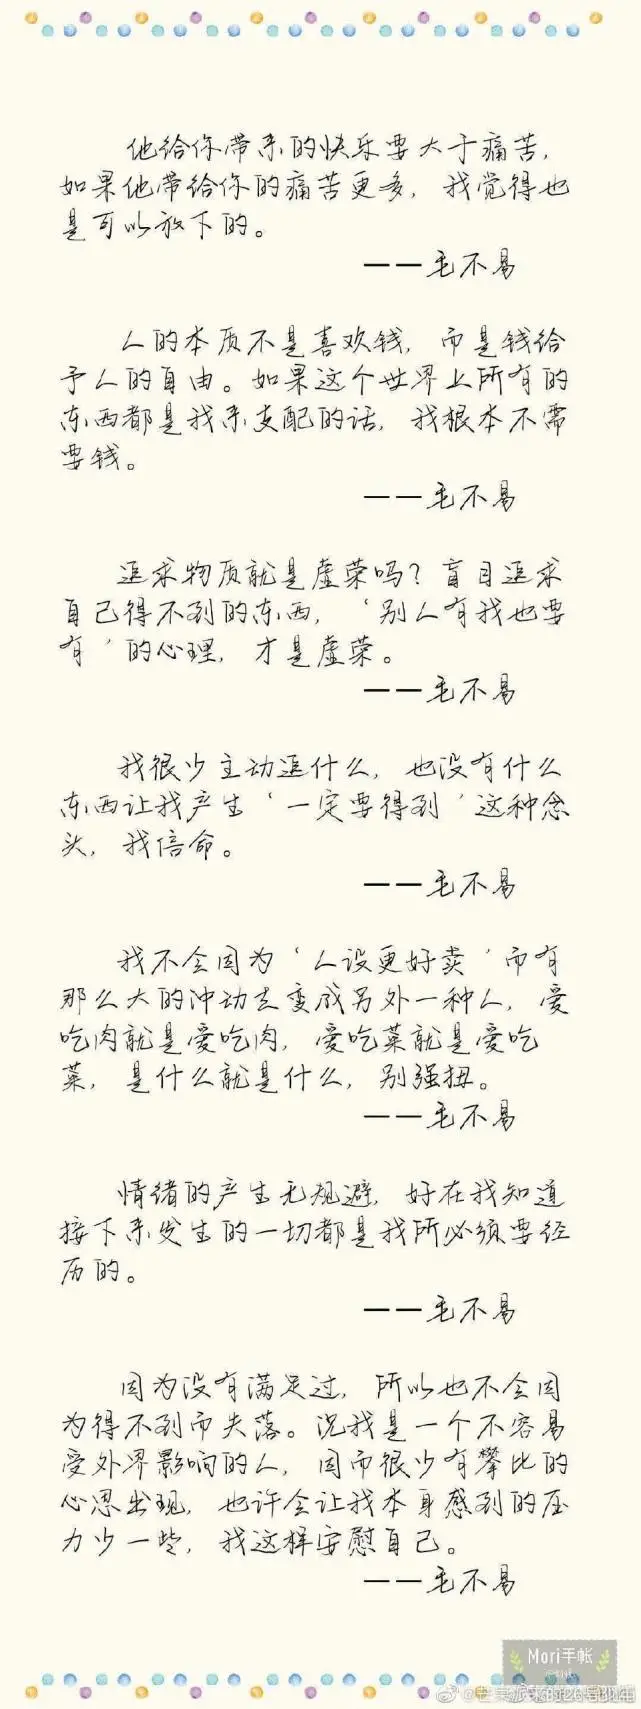 他给你带来的快乐要大于痛苦，
如果他带给你的痛苦更多，我觉得也
是可以放下的。
——毛不易
人的本质不是喜欢钱，而是钱给
予人的自由。如果这个世界上所有的
东西都是我来支配的话，我根本不需
要钱。
——毛不易
追求物质就是虚荣吗？盲目追求
自己得不到的东西，‘别人有我也要
有’的心理，才是虚荣。
——毛不易
我很少主动追什么，也没有什么
东西让我产生‘一定要得到’这种念
头，我信命。
——毛不易
我不会因为‘人设更好卖’而有
那么大的冲动去变成另外一种人，爱
吃肉就是爱吃肉，爱吃菜就是爱吃
菜，是什么就是什么，别强扭。
——毛不易
情绪的产生无规避，好在我知道
接下来发生的一切都是我所必须要经
历的。
——毛不易
因为没有满足过，所以也不会因
为得不到而失落。况我是一个不容易
受外界影响的人，因而很少有攀比的
心思出现，也许会让我本身感到的压
力少一些，我这样安慰自己。
——毛不易
Mori手帐